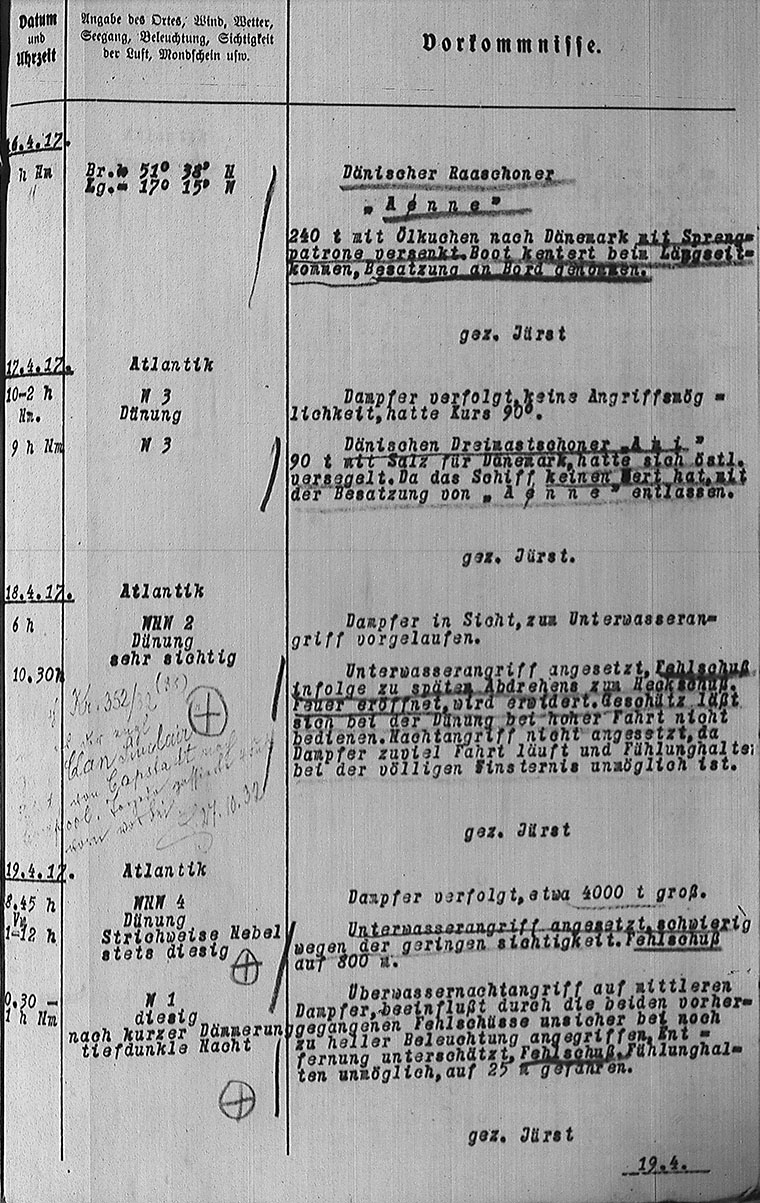 Datum
und
Uhrzeit
Angabe des Ortes, Wind, Wetter,
Seegang, Beleuchtung, Sichtigkeit
der Luft, Mondschein usw.
Vorkommnisse.
16.4.17.
h Nm
Br.= 51° 38' N
Lg.= 17° 15' W
Dänischer Raaschoner
„ A ø n n e "
240 t mit Ölkuchen nach Dänemark mit Spreng=
patrone versenkt. Boot kentert beim Längseit=
kommen, Besatzung an Bord genommen.
gez. Jürst
17.4.17.
Atlantik
10-2 h
Nm.
N 3
Dünung
Dampfer verfolgt, keine Angriffsmög =
lichkeit, hatte Kurs 90°.
9 h Nm
N 3
Dänischen Dreimastschoner „A m i "
90 t mit Salz für Dänemark, hatte sich östl.
versegelt. Da das Schiff keinen Wert hat, mit
der Besatzung von „ A ø n n e " entlassen.
gez. Jürst.
18.4.17.
Atlantik
6 h
WNW 2
Dünung
sehr sichtig
Dampfer in Sicht, zum Unterwasseran=
griff vorgelaufen.
10.30h
Unterwasserangriff angesetzt, Fehlschuß
infolge zu späten Abdrehens zum Heckschuß.
Feuer eröffnet, wird erwidert. Geschütz läßt
sich bei der Dünung bei hoher Fahrt nicht
bedienen. Nachtangriff nicht angesetzt, da
Dampfer zuviel Fahrt läuft und Fühlunghalte
bei der völligen Finsternis unmöglich ist.
Kr. 352/32 (33)
Clan Sinclair
von Capstadt
27.10.32
gez. Jürst
19.4.17.
Atlantik
8.45 h
Vm
WNW 4
Dünung
Dampfer verfolgt, etwa 4000 t groß.
1-12 h
Strichweise Nebel
stets diesig
Unterwasserangriff angesetzt, schwierig
wegen der geringen sichtigkeit. Fehlschuß
auf 800 m.
0.30 -
1 h Nm
N 1
diesig
nach kurzer Dämmerung
tiefdunkle Nacht
Überwassernachtangriff auf mittleren
Dampfer, beeinflußt durch die beiden vorher=
gegangenen Fehlschüsse unsicher bei noch
zu heller Beleuchtung angegriffen. Ent =
fernung unterschätzt, Fehlschuß. Fühlunghal=
ten unmöglich, auf 25 m gefahren.
gez. Jürst
19.4.